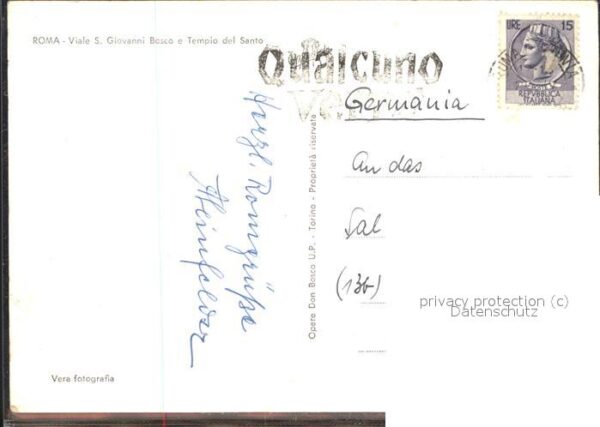 ROMA - Viale S. Giovanni Bosco e Tempio del Santo
Qualcuno
LIRE 15
REPVBBLICA
ITALIANA
Germània
An das
Sal
(13b)
Herzl. Romgrüße
Opere Don Bosco U.P. - Torino - Proprietà riservata
privacy protection (c)
Datenschutz
Vera fotografia